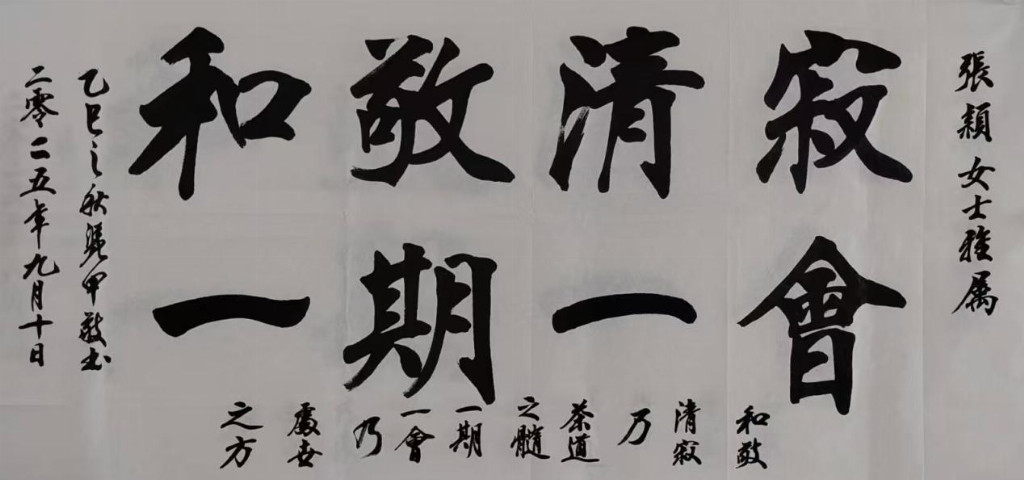 張頴女士雅属
和敬清寂
一期一會
和敬
清寂
乃
茶道
之髓
一期
一會
乃
處世
之方
乙巳之秋甲敬书
二零二五年九月十日